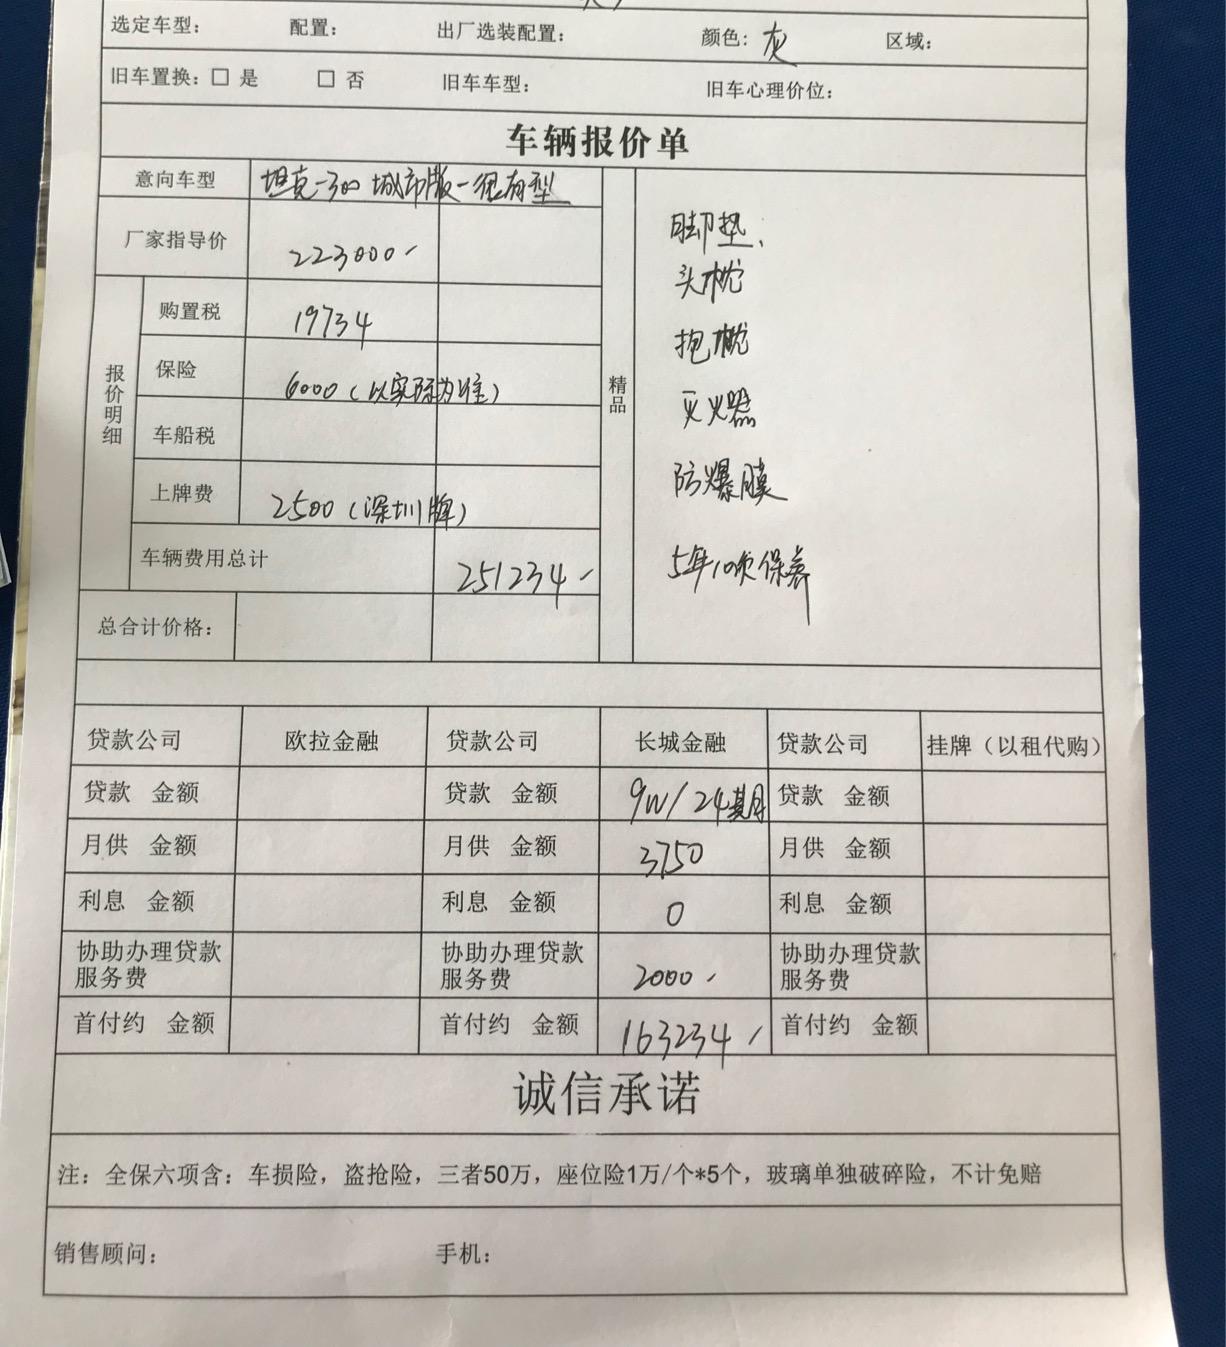 选定车型： 配置： 出厂选装配置： 颜色: 灰 区域：
旧车置换：□ 是 □ 否 旧车车型： 旧车心理价位：
车辆报价单
意向车型 坦克-300 城市版-很有型
厂家指导价 223000
购置税 19734
保险 6000（以实际为准）
车船税
上牌费 2500（深圳牌）
报价明细
车辆费用总计 251234
总合计价格：
精品
脚垫、
头枕
抱枕
灭火器
防爆膜
5年10次保养
贷款公司 欧拉金融 贷款公司 长城金融 贷款公司 挂牌（以租代购）
贷款 金额 贷款 金额 9W/24期 贷款 金额
月供 金额 月供 金额 3750 月供 金额
利息 金额 利息 金额 0 利息 金额
协助办理贷款 协助办理贷款 协助办理贷款
服务费 服务费 2000 服务费
首付约 金额 首付约 金额 163234 首付约 金额
诚信承诺
注：全保六项含：车损险，盗抢险，三者50万，座位险1万/个*5个，玻璃单独破碎险，不计免赔
销售顾问： 手机：